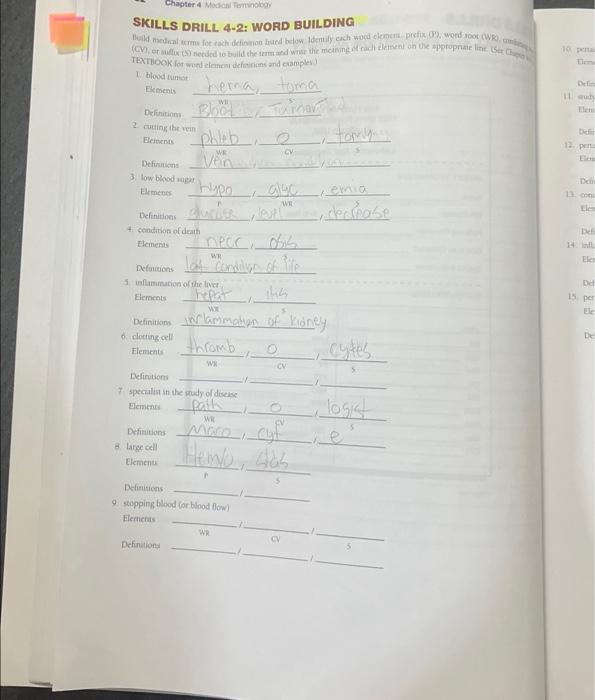 Chapter 4 Medical Terminology
SKILLS DRILL 4-2: WORD BUILDING
Build medical terms for each definition listed below. Identify each word element, prefix (P), word root (WR),
(CV), or suffix (S) needed to build the term and write the meaning of each element on the appropriate line. (See Chapter
TEXTBOOK for word element definitions and examples.)
1. blood tumor
Elements hema, toma
WR S
Definitions Blood, Tumor
2. cutting the vein
Elements phleb, o, tomy
WR CV S
Definitions Vein
3. low blood sugar
Elements hypo, glyc, emia
P WR S
Definitions , level, decrease
4. condition of death
Elements necr, osis
WR S
Definitions condition of life
5. inflammation of the liver
Elements hepat, itis
WR S
Definitions inflammation of kidney
6. clotting cell
Elements thromb, o, cytes
WR CV S
Definitions
7. specialist in the study of disease
Elements path, o, logist
WR CV S
Definitions Macro, cyt, e
8. large cell
Elements Hemo,
P S
Definitions
9. stopping blood (or blood flow)
Elements
WR CV S
Definitions
10.
11. study
12.
13.
14.
15. per